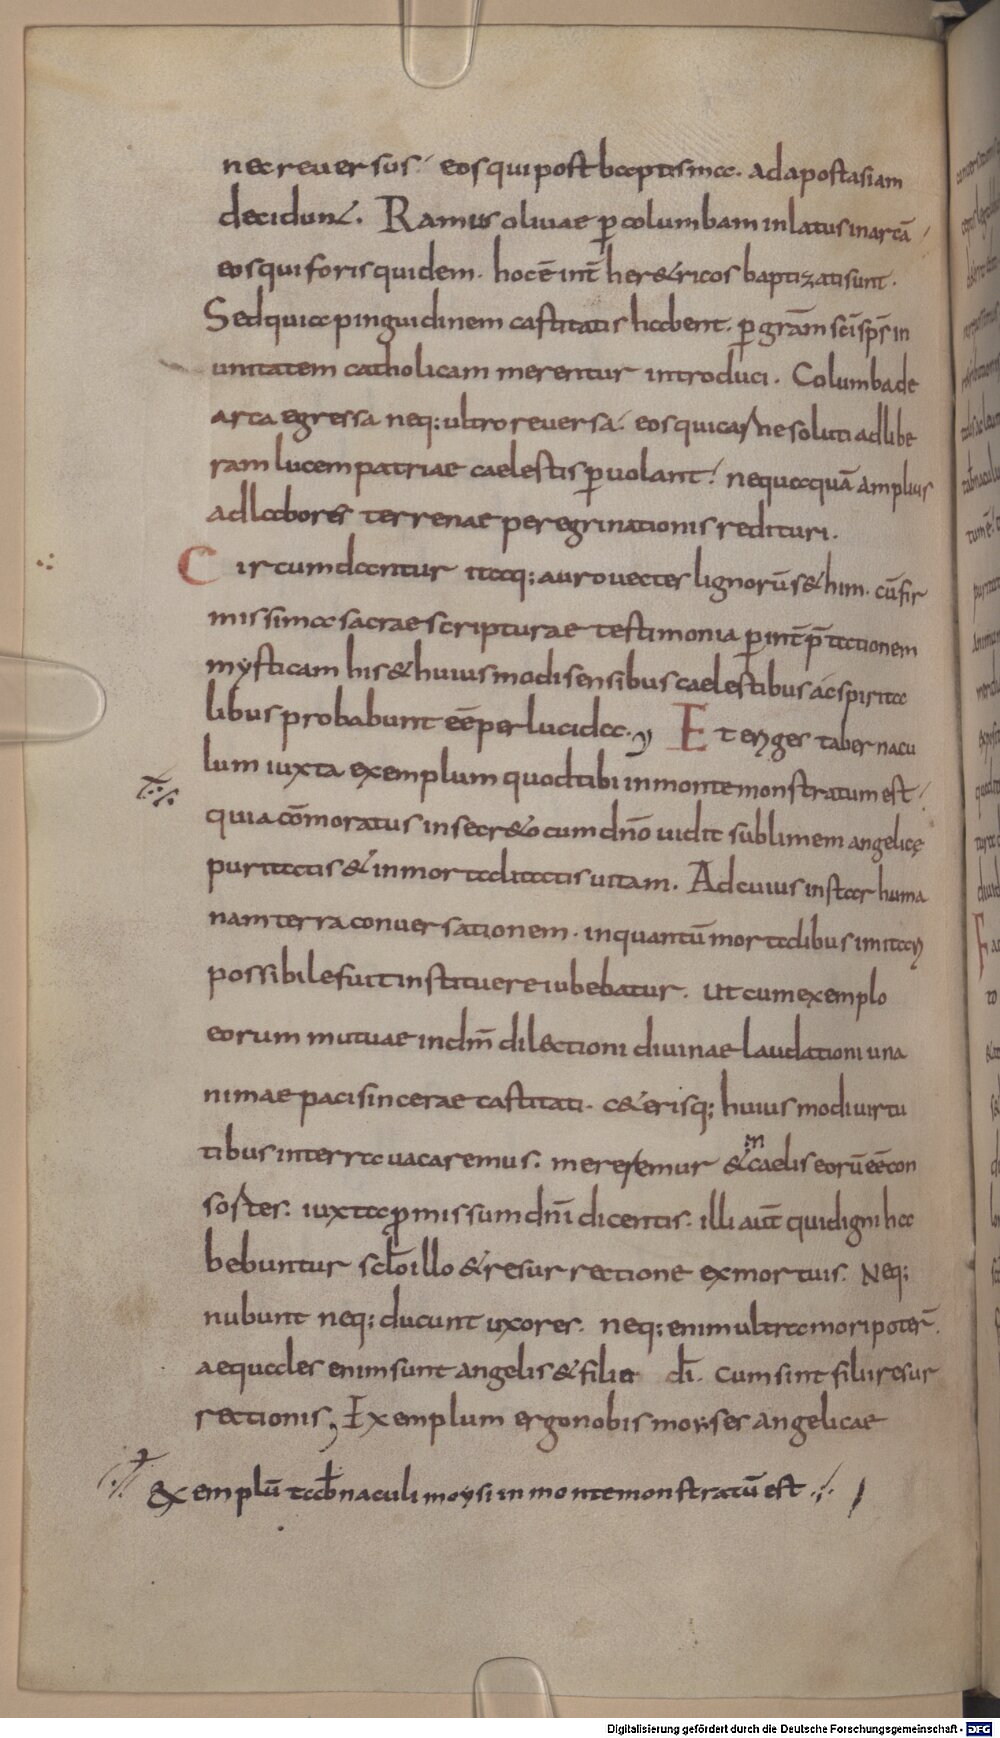 nec reuersus. eos qui post baptisma. ad apostasiam
decidunt. Ramus oliuae p̲ columbam inlatus in arcā
eos qui foris quidem. hoc ē int̄ her&ricos baptizati sunt.
Sed quia pinguidinem castitatis habent. p̲ grām sc̄i sp̄s in
unitatem catholicam merentur introduci. Columba de
arca egressa neq; ultro reuersa. eos qui carne soluti ad libe
ram lucem patriae caelestis p̲uolant. nequaquā amplius
ad labores terrenae peregrinationis redituri.
Circumdantur itaq; auro uectes lignorū s&him. cū fir
missima sacrae scripturae testimonia p̲ int̄p̄tationem
mysticam his & huiusmodi sensibus caelestibus ac spirita
libus probabunt eē perlucida. Et erıges tabernacu
lum iuxta exemplum quod tibi in monte monstratum est
quia cōmoratus in secr&o cum dn̄o uidit sublimem angelicę
puritatis & inmortalitatis uitam. Ad cuius instar huma
nam terra conuersationem. inquantū mortalibus imitari
possibile fuit instituere iubebatur. Ut cum exemplo
eorum mutuae in dm̄ dilectioni diuinae laudationi una
nimae paci sincerae castitati. c&erisq; huiusmodi uirtu
tibus in terra uacaremus. meremur & in caelis eorū eē con
sortes. iuxta p̲missum dn̄i dicentis. illi aut̄ qui digni ha
bebuntur sc̄lo illo & resurrectione ex mortuis. Neq;
nubunt neq; ducunt uxores. neq; enim ultra mori poter̄.
aequales enim sunt angelis & filii dī. cum sint filii resur
rectionis, Exemplum ergo nobis morses angelicae
&xemplū tab̄naculi moysi in monte monstratū est
Digitalisierung gefördert durch die Deutsche Forschungsgemeinschaft - DFG